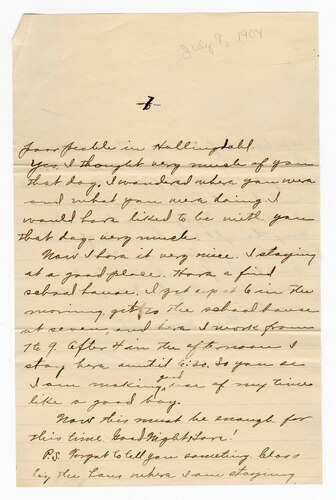 July 9, 1904
7
poor people in Hallingdahl.
Yes, I thought very much of you
that day. I wondered where you were
and what you were doing. I
would have liked to be with you
that day very much.
Now I have it very nice. I staying
at a good place. Have a find
school house. I get up at 6 in the
morning, get to the school house
at seven, and here I work from
7 to 9. After 4 in the afternoon I
stay here until six. So you se
I am making good use of my time
like a good boy.
Now this must be enough for
this time. Good Night, Love!
P.S. Forgot to tell you something. Close
by the house where I am staying